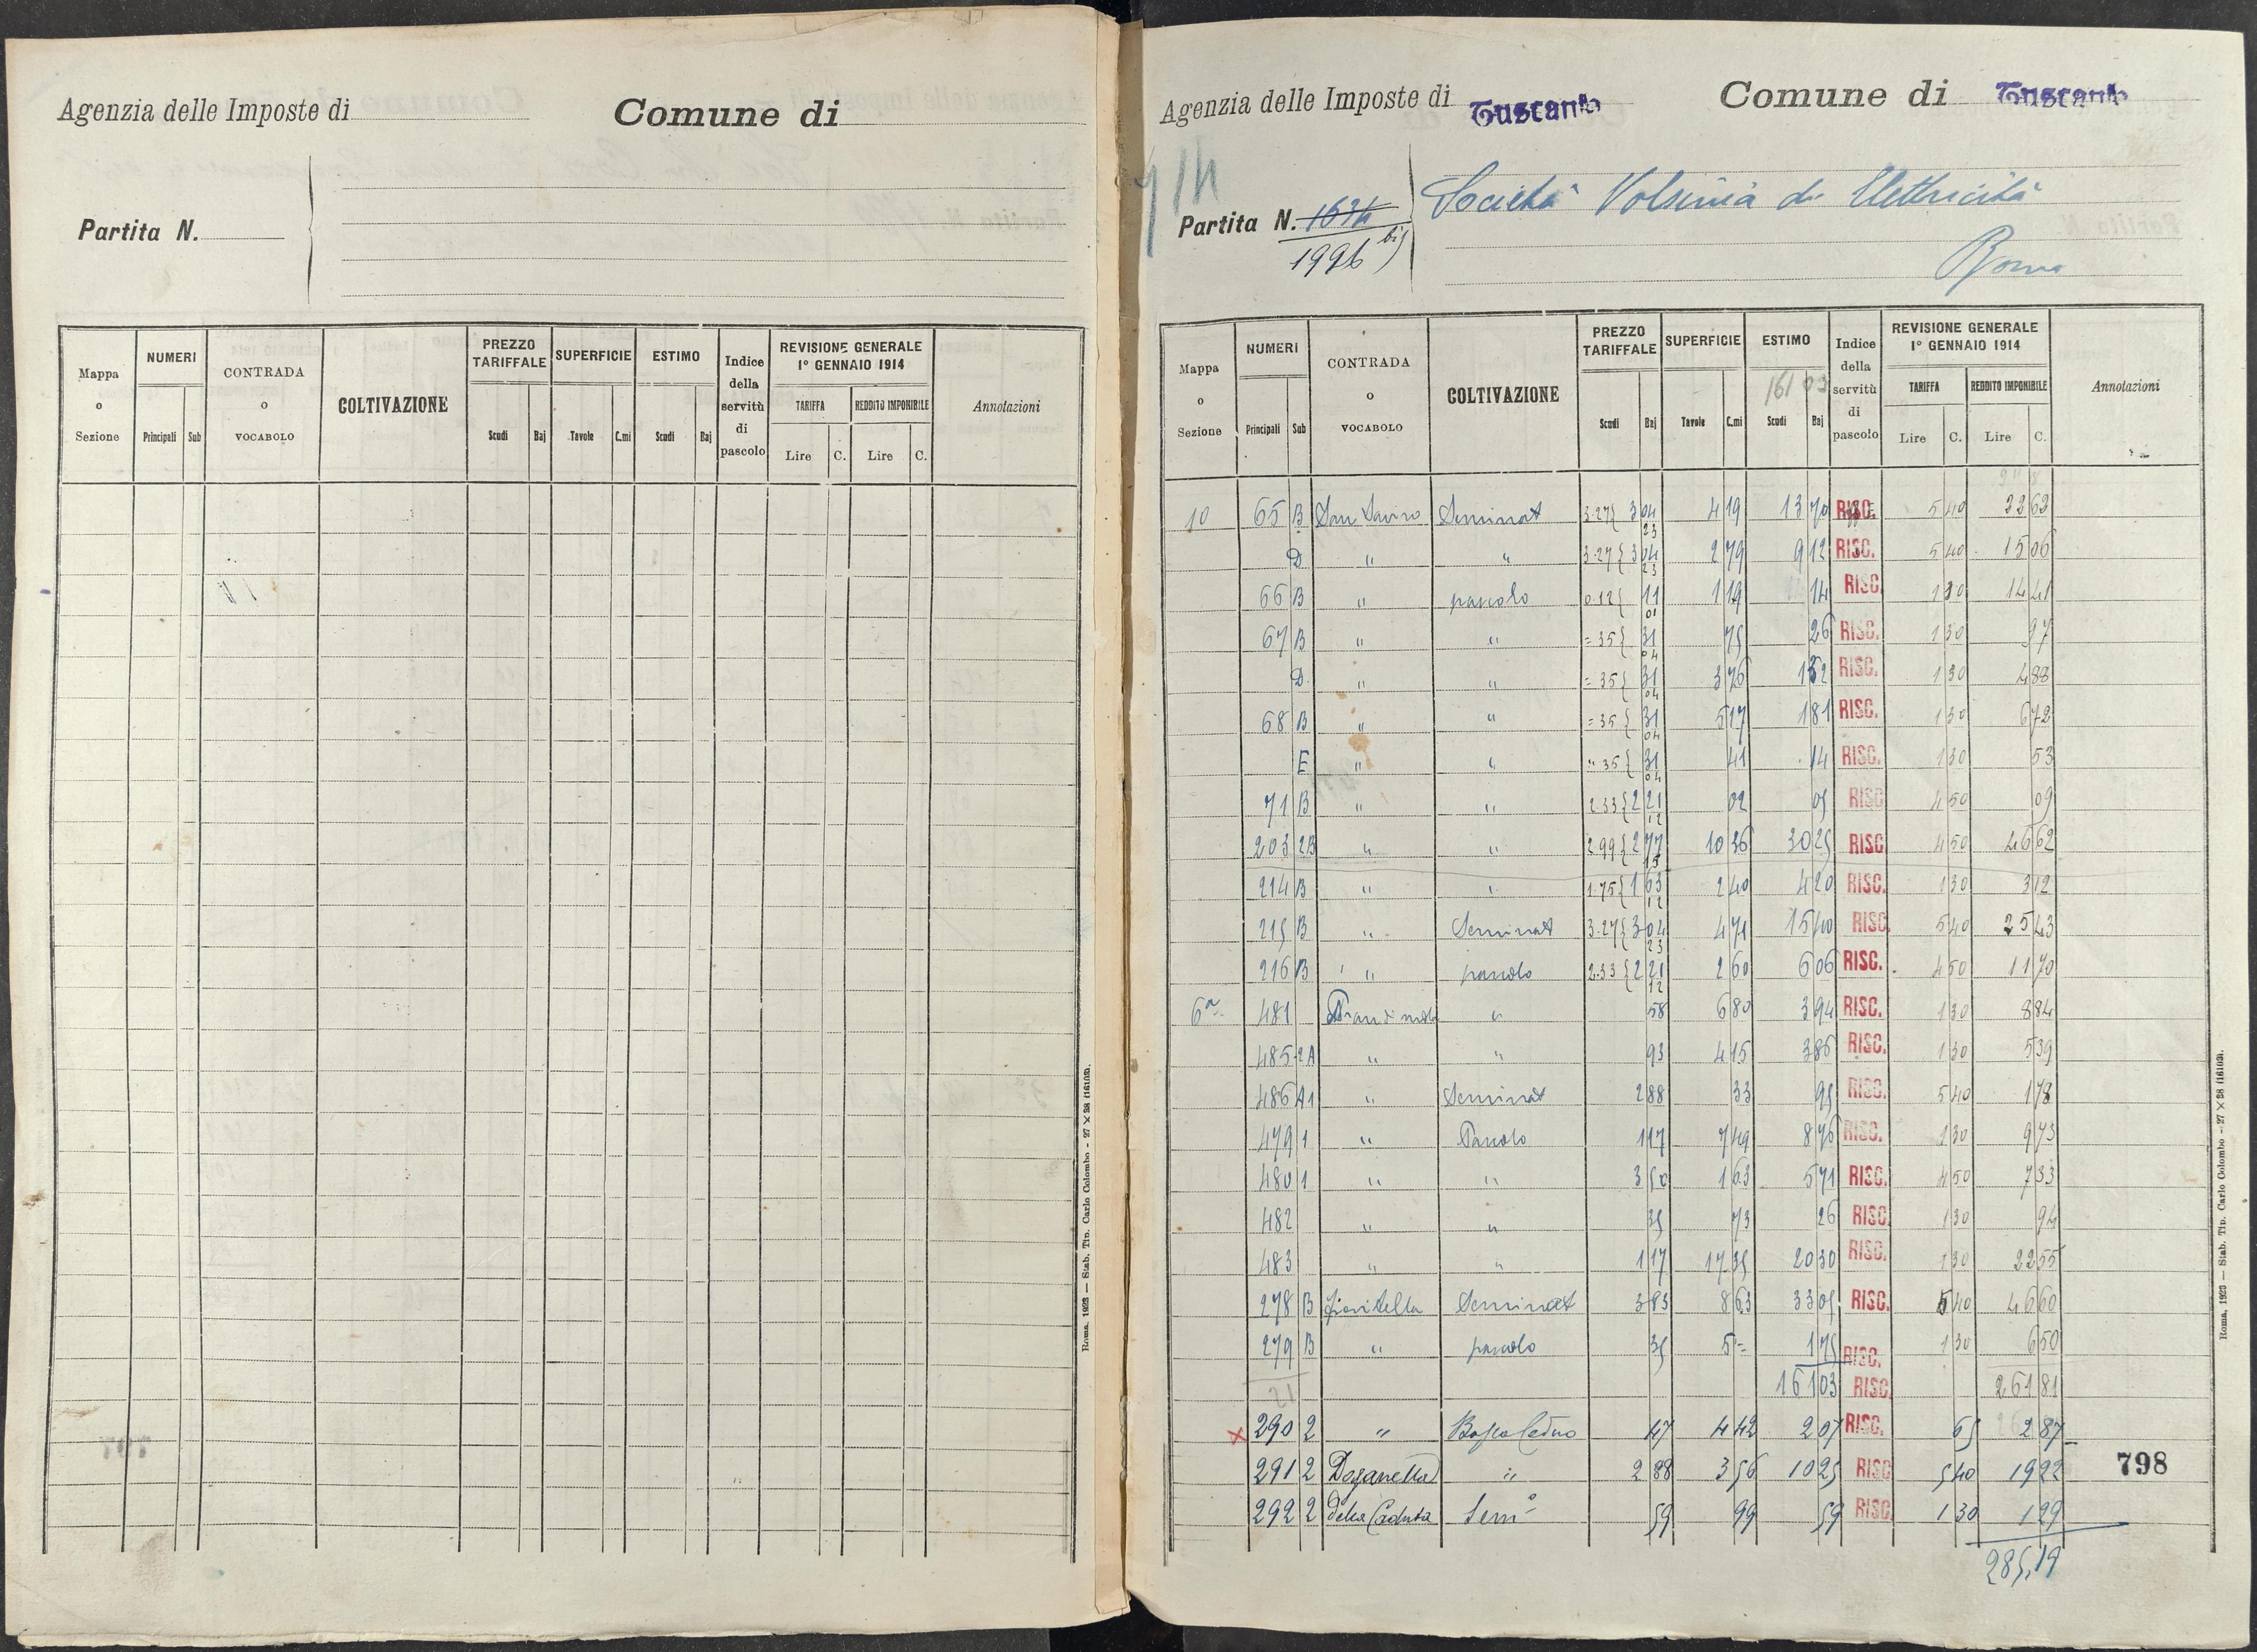 Agenzia delle Imposte di
Comune di
Partita N.
Mappa o Sezione
NUMERI
Principali Sub
CONTRADA O VOCABOLO
COLTIVAZIONE
PREZZO TARIFFALE
Scudi Baj
SUPERFICIE
Tavole C.mi
ESTIMO
Scudi Baj
Indice della servitù di pascolo
REVISIONE GENERALE 1° GENNAIO 1914
TARIFFA
Lire C.
REDDITO IMPONIBILE
Lire C.
Annotazioni
Roma, 1923 — Stab. Tip. Carlo Colombo - 27 X 38 (16103).
Agenzia delle Imposte di Tuscania
Comune di Tuscania
Partita N. 1634
1996 bis
Società Volsinia di Elettricità
Roma
Mappa o Sezione
NUMERI
Principali Sub
CONTRADA O VOCABOLO
COLTIVAZIONE
PREZZO TARIFFALE
Scudi Baj
SUPERFICIE
Tavole C.mi
ESTIMO
161 03
Scudi Baj
Indice della servitù di pascolo
REVISIONE GENERALE 1° GENNAIO 1914
TARIFFA
Lire C.
REDDITO IMPONIBILE
Lire C.
Annotazioni
10 65 B San Savino Seminat 3.27 { 3 04 23 4 19 13 70 RISC. 5 40 22 63
D " " 3.27 { 3 04 23 2 79 9 12 RISC. 5 40 15 06
66 B " pascolo 0.12 { 11 01 1 19 14 RISC. 1 30 1441
67 B " " = 35 { 31 04 75 26 RISC. 1 30 97
D " " = 35 { 31 04 3 76 1 32 RISC. 1 30 4 88
68 B " " = 35 { 31 04 5 17 1 81 RISC. 1 30 6 72
E " " " 35 { 31 04 41 14 RISC. 1 30 53
71 B " " 2.33 { 2 21 12 02 05 RISC. 4 50 09
203 2B " " 2.99 { 2 77 15 10 36 30 25 RISC. 4 50 46 62
214 B " " 1.75 { 1 63 12 2 40 4 20 RISC. 1 30 3 12
215 B " Seminat 3.27 { 3 04 23 4 71 15 40 RISC. 5 40 25 43
216 B " pascolo 2.33 { 2 21 12 2 60 6 06 RISC. 4 50 11 70
6a 481 " 58 6 80 3 94 RISC. 1 30 8 84
485 2A " " 93 4 15 3 86 RISC. 1 30 5 39
486 A1 " Seminat 2 88 33 95 RISC. 5 40 1 78
479 1 " Pascolo 1 17 7 49 8 76 RISC. 1 30 9 73
480 1 " " 3 50 1 63 5 71 RISC. 4 50 7 33
482 " " 35 73 26 RISC. 1 30 94
483 " " 1 17 17 35 20 30 RISC. 1 30 22 55
278 B Fioritella Seminat 3 83 8 63 33 05 RISC. 5 40 46 60
279 B " pascolo 35 5 = 1 75 RISC. 1 30 6 50
161 03 RISC. 261 81
X 290 2 " Bosco Ceduo 47 4 42 2 07 RISC. 65 2 87
291 2 Doganella " 2 88 3 56 10 25 RISC. 5 40 19 22
292 2 della Caduta Semo 59 99 59 RISC. 1 30 1 29
285,19
798